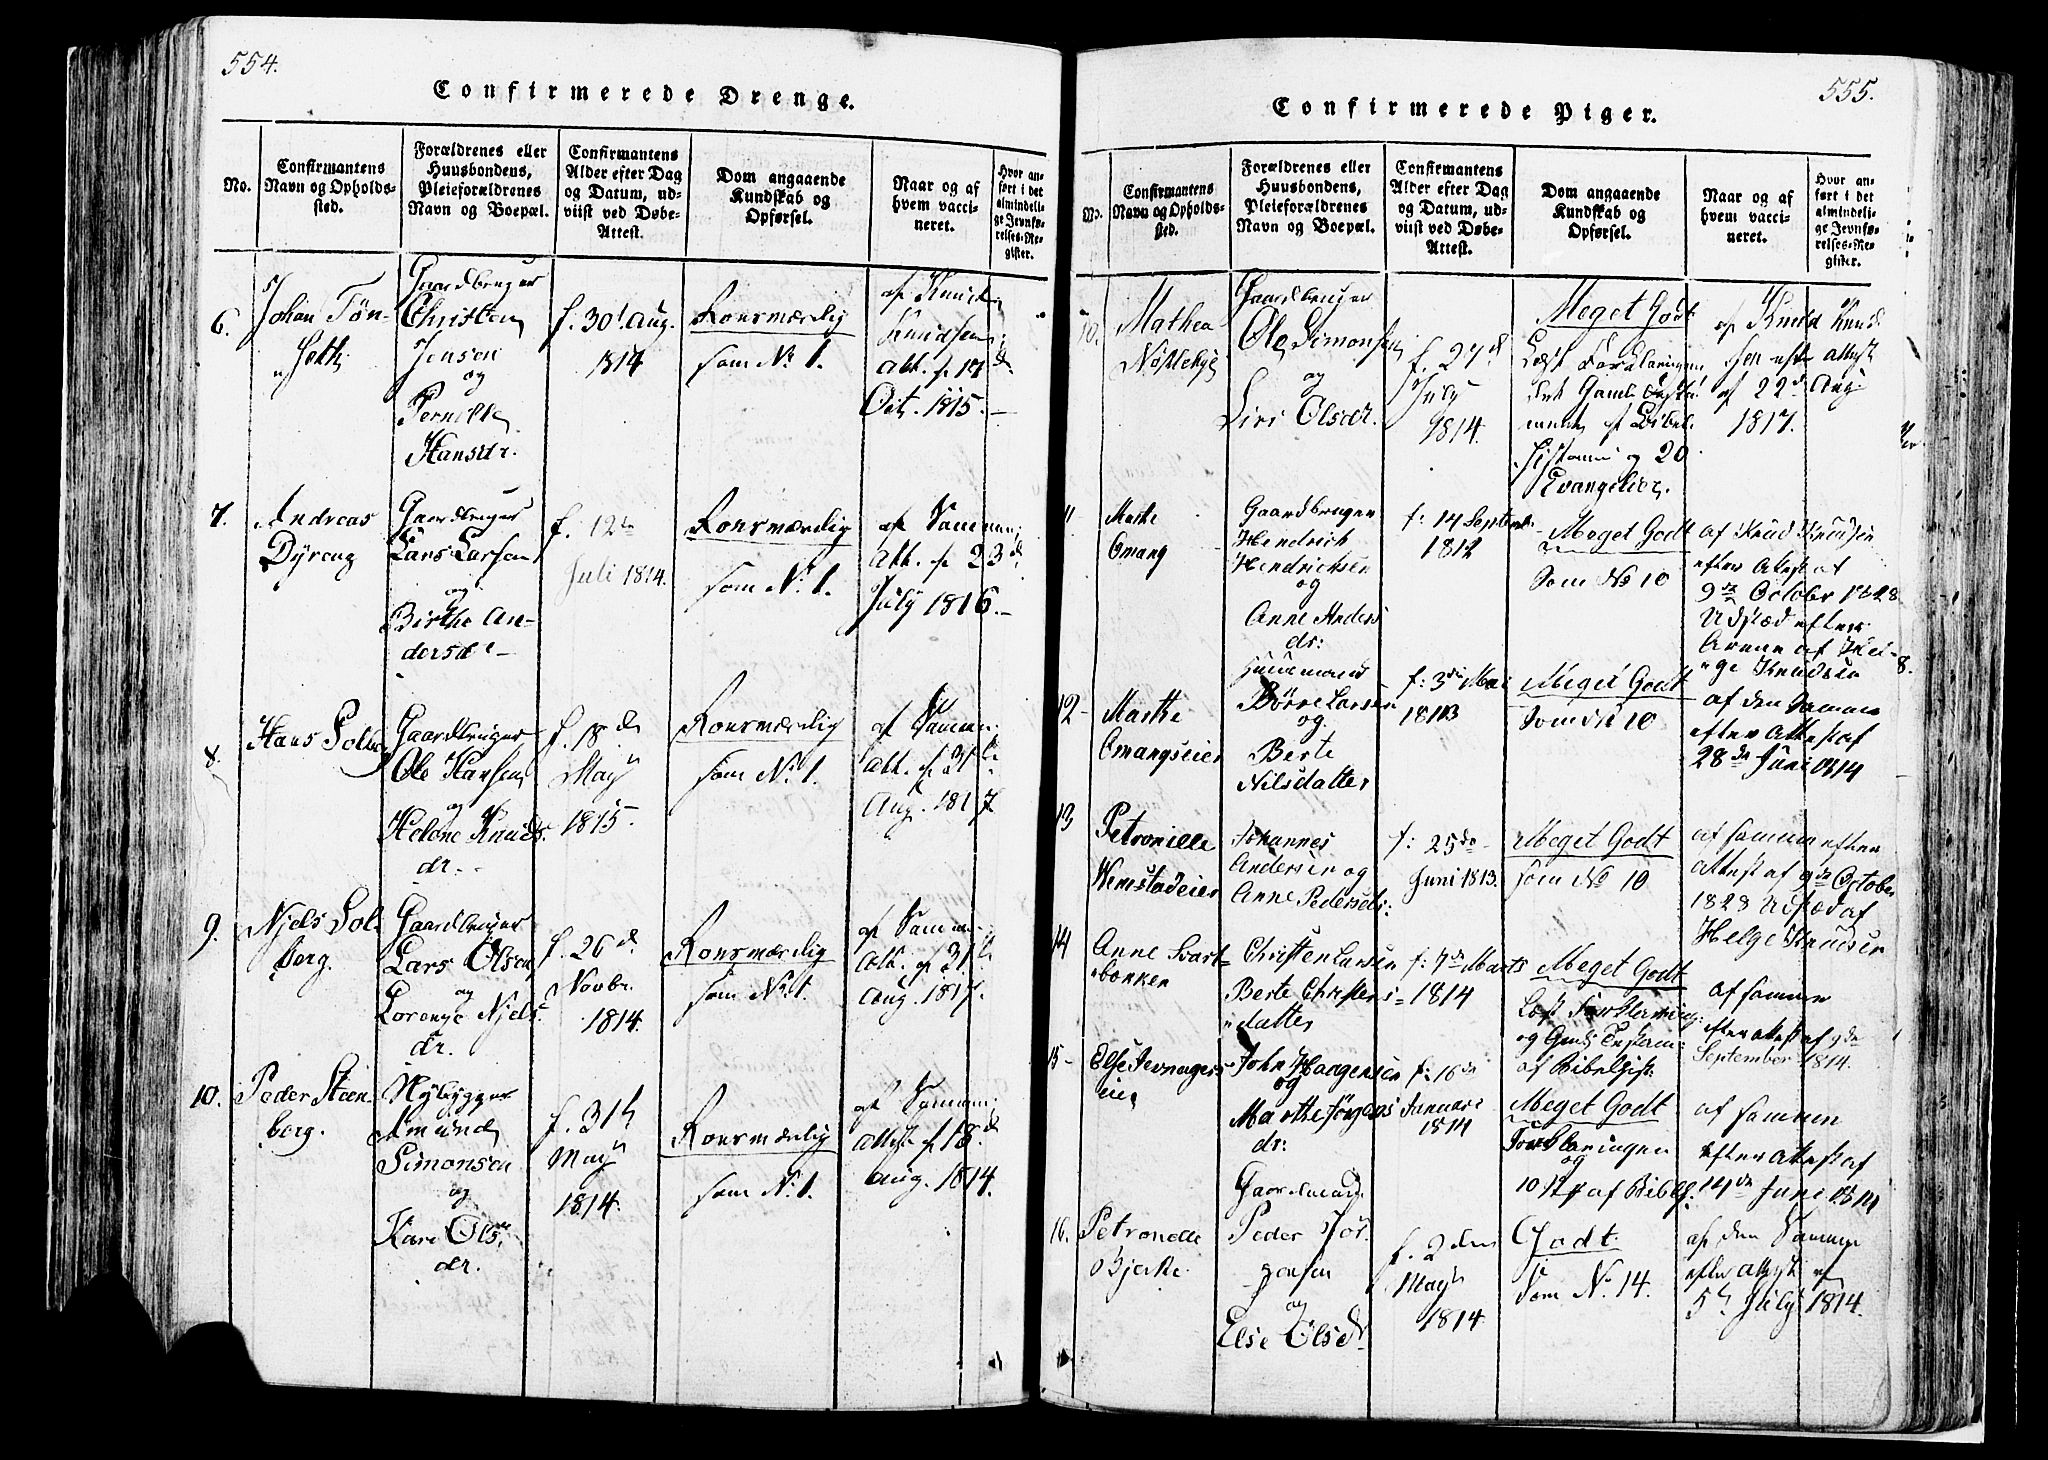 554.
Confirmerede Drenge.
No.
Confirmantens
Navn og Opholds-
sted.
Forældrenes eller
Huusbondens,
Pleieforældrenes
Navn og Boepæl.
Confirmantens
Alder efter Dag
og Datum, ud-
viist ved Døbe-
Attest.
Dom angaaende
Kundskab og
Opførsel.
Naar og af
hvem vacci-
neret.
Hvor an-
ført i det
almindeli-
ge Jevnfø-
relses-Re-
gister.
6.
Johan Tøn-
seth
Gaardbruger
Christen
Jensen
og
Pernille
Hansdr.
f. 30t Aug.
1814
Roesværdig
som No 1.
af Knud
Knudsen
Att. af 17 d
Oct. 1815.
7.
Andreas
Dyreng
Gaardbruger
Lars Larsen
og
Birthe An-
dersdr
f. 12te
Juli 1814.
Roesværdig
som No 1.
af Samme
Att. af 23 d
July 1816.
8.
Hans Solberg
Gaardbruger
Ole Hansen
og
Helene Knuds
dr.
f. 18de
May
1815.
Roesværdig
som No 1.
af Samme
Att. af 31t
Aug. 1817.
9.
Njels Sol-
berg.
Gaardbruger
Lars Olsen
og
Lorenze Njels
dr.
f. 26d
Novbr.
1814.
Roesværdig
som No 1.
af Samme
Att. af 31t
Aug. 1817.
10.
Peder Steen
berg.
Nybygger
Amund
Simonsen
og
Kari Ols
dr.
f. 31t
May
1814.
Roesværdig
som No 1.
af Samme
Attest af 18d
Aug. 1814.
555.
Confirmerede Piger.
No.
Confirmantens
Navn og Opholds-
sted.
Forældrenes eller
Huusbondens,
Pleieforældrenes
Navn og Boepæl.
Confirmantens
Alder efter Dag
og Datum, ud-
viist ved Døbe-
Attest.
Dom angaaende
Kundskab og
Opførsel.
Naar og af
hvem vacci-
neret.
Hvor an-
ført i det
almindeli-
ge Jevnfø-
relses-Re-
gister.
10.
Mathea
Gaardbruger
Ole Simonsen
og
Siri Olsdr.
f. 27d
July
1814.
Meget Godt
Læst Forklaringen
det Gamle Testa
mente af Bibel
Historien og 20
Evangelier.
af Knud Knud
sen efter Attest
af 22d Aug
1817.
11
Marthe
Omang
Gaardbruger
Hendrich
Hendrichsen
og
Anne Anders
ds:
f: 14 Septembr
1812
Meget Godt
Som No 10
af Knud Knudsen
efter Attest af
9de October 1828
Udstæd efter
Arven af Hel-
ge Knudsen
12
Marthe
Omangseier
Huusmand
Børre Larsen
og
Berte
Nilsdatter
f: 3die Mai
1813
Meget Godt
Som No 10
af den Samme
efter Attest af
28de Juni 1814
13
Petronille
Johannes
Andersen og
Anne Pedersds:
f: 25de
Juni 1813.
Meget Godt
som No 10
af samme efter
Attest af 9de October
1828 Udstæd af
Helge Knudsen
14
Anne Svart-
bækken
Christen Larsen
Berte Christens-
datter
f: 7de Marts
1814
Meget Godt
Læst Forklaring
og Gamle Testam
af Bibelhist:
af samme
efter Attest af 9de
September 1814.
15
John Haagensen
og
Marthe Jørgens
ds:
f: 16de
Januari
1814
Meget Godt
Forklaringen
og
af Bibelh.
af samme
efter Attest af
14de Juni 1814
16.
Petronelle
Bjerke
Gaardmand
Peder Jør
gensen
og
Else Olsdr
f. 2den
May
1814
Godt
Som No. 14.
af den Samme
efter Attest af
5t July 1814.